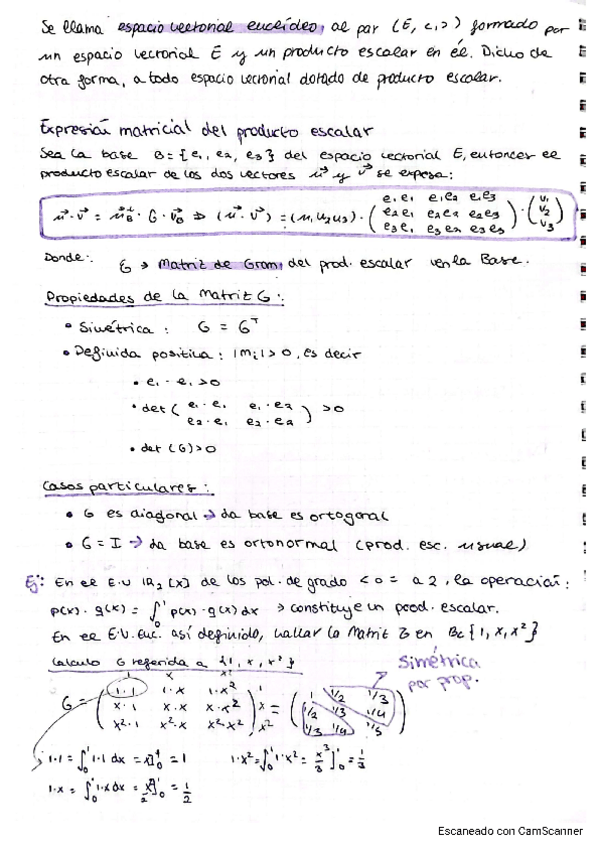 Se llama espacio vectorial euclídeo, al par (E, <,>) formado por
un espacio vectorial E y un producto escalar en él. Dicho de
otra forma, a todo espacio vectorial dotado de producto escalar.
Expresión matricial del producto escalar
Sea la base B={e₁, e₂, e₃} del espacio vectorial E, entonces el
producto escalar de los dos vectores u⃗ y v⃗ se expesa:
u⃗·v⃗ = u⃗ᵗ_B · G · v⃗_B ⇒ (u⃗·v⃗) = (u₁ u₂ u₃) · ( e₁e₁ e₁e₂ e₁e₃
e₂e₁ e₂e₂ e₂e₃
e₃e₁ e₃e₂ e₃e₃ ) · ( v₁
v₂
v₃ )
Donde:
G → Matriz de Gram, del prod. escalar en la Base.
Propiedades de la Matriz G:
• Simétrica: G = Gᵀ
• Definida positiva: |mᵢ|>0, es decir
• e₁·e₁>0
• det ( e₁·e₁ e₁·e₂
e₂·e₁ e₂·e₂ ) >0
• det (G)>0
Casos particulares:
• G es diagonal → la base es ortogonal
• G = I → la base es ortonormal (prod. esc. usual)
Ej: En el E.V ℝ₂[x] de los pol. de grado < o = a 2, la operación:
p(x)·q(x) = ∫₀¹ p(x)·q(x)dx → constituye un prod. escalar.
En el E.V. Euc. así definido, hallar la Matriz G en Bc{1, x, x²}
Calculo G referida a {1, x, x²}
Simétrica
por prop.
1 x x²
G = ( 1·1 1·x 1·x²
x·1 x·x x·x²
x²·1 x²·x x²·x² ) 1 x x² = ( 1 1/2 1/3
1/2 1/3 1/4
1/3 1/4 1/5 )
1·1 = ∫₀¹ 1·1 dx = x]₀¹ = 1
1·x² = ∫₀¹ 1·x² = x³/3 ]₀¹ = 1/3
1·x = ∫₀¹ 1·x dx = x²/2 ]₀¹ = 1/2
Escaneado con CamScanner